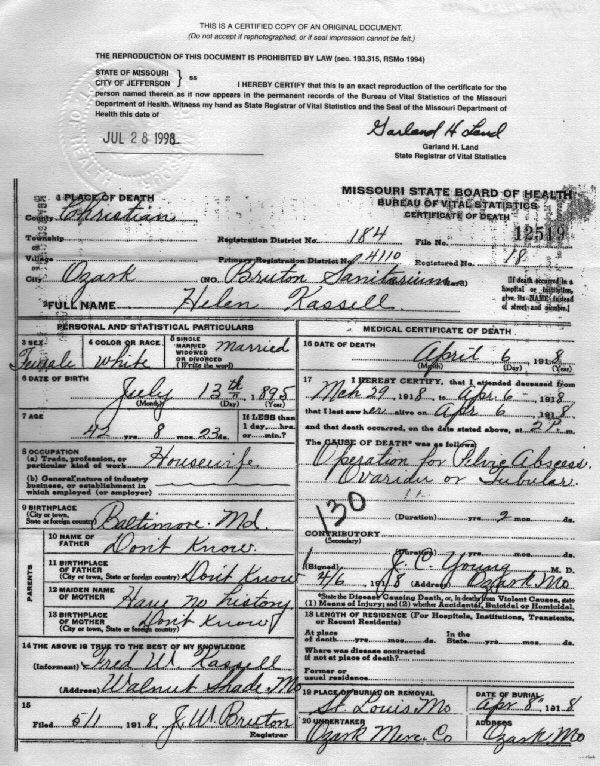 THIS IS A CERTIFIED COPY OF AN ORIGINAL DOCUMENT.
(Do not accept if rephotographed, or if seal impression cannot be felt.)
THE REPRODUCTION OF THIS DOCUMENT IS PROHIBITED BY LAW (sec. 193.315, RSMo 1994)
STATE OF MISSOURI
CITY OF JEFFERSON } ss
I HEREBY CERTIFY that this is an exact reproduction of the certificate for the
person named therein as it now appears in the permanent records of the Bureau of Vital Statistics of the Missouri
Department of Health. Witness my hand as State Registrar of Vital Statistics and the Seal of the Missouri Department of
Health this date of
JUL 28 1998
Garland H Land
Garland H. Land
State Registrar of Vital Statistics
MISSOURI STATE BOARD OF HEALTH
BUREAU OF VITAL STATISTICS
CERTIFICATE OF DEATH
1 PLACE OF DEATH
County Christian
Township
Registration District No. 184
File No. 12519
Village
or
Primary Registration District No. 4110
Registered No. 18
City Ozark (NO. Bruton Sanitarium
If death occurred in a
hospital or institution,
give its NAME instead
of street and number.
2 FULL NAME Helen Kassell
PERSONAL AND STATISTICAL PARTICULARS
3 SEX
Female
4 COLOR OR RACE
White
5 SINGLE
MARRIED
WIDOWED
OR DIVORCED
(Write the word)
Married
6 DATE OF BIRTH
July 13th, 1895
(Month) (Day) (Year)
7 AGE
42 yrs. 8 mos. 23 ds.
If LESS than
1 day, hrs.
or min.?
8 OCCUPATION
(a) Trade, profession, or
particular kind of work Housewife
(b) General nature of industry
business, or establishment in
which employed (or employer)
9 BIRTHPLACE
(City or town,
State or foreign country) Baltimore. Md.
PARENTS
10 NAME OF
FATHER Don't Know.
11 BIRTHPLACE
OF FATHER
(City or town, State or foreign country) Don't Know
12 MAIDEN NAME
OF MOTHER Have no history
13 BIRTHPLACE
OF MOTHER
(City or town, State or foreign country) Don't Know
14 THE ABOVE IS TRUE TO THE BEST OF MY KNOWLEDGE
(Informant) Fred W. Kassell
(Address) Walnut Shade Mo
15
Filed 5/1 1918 J. W. Bruton
Registrar
MEDICAL CERTIFICATE OF DEATH
16 DATE OF DEATH
April 6, 1918
(Month) (Day) (Year)
17 I HEREBY CERTIFY, that I attended deceased from
Mch 29, 1918, to Apr 6 - 1918
that I last saw her alive on Apr 6, 1918
and that death occurred, on the date stated above, at 2 P. m.
The CAUSE OF DEATH* was as follows:
Operation for Pelvic Abscess
Ovarian or Tubular.
130
(Duration) yrs. 2 mos. ds.
CONTRIBUTORY
(Secondary)
(Duration) yrs. mos. ds.
(Signed) J. C. Young M. D.
4/6, 1918 (Address) Ozark Mo
*State the Disease Causing Death, or, in deaths from Violent Causes, state
(1) Means of Injury; and (2) whether Accidental, Suicidal or Homicidal.
18 LENGTH OF RESIDENCE (For Hospitals, Institutions, Transients,
or Recent Residents)
At place
of death yrs. mos. ds.
In the
State yrs. mos. ds.
Where was disease contracted
if not at place of death?
Former or
usual residence
19 PLACE OF BURIAL OR REMOVAL
St. Louis Mo
DATE OF BURIAL
Apr 8th 1918
20 UNDERTAKER
Ozark Merc. Co
ADDRESS
Ozark Mo